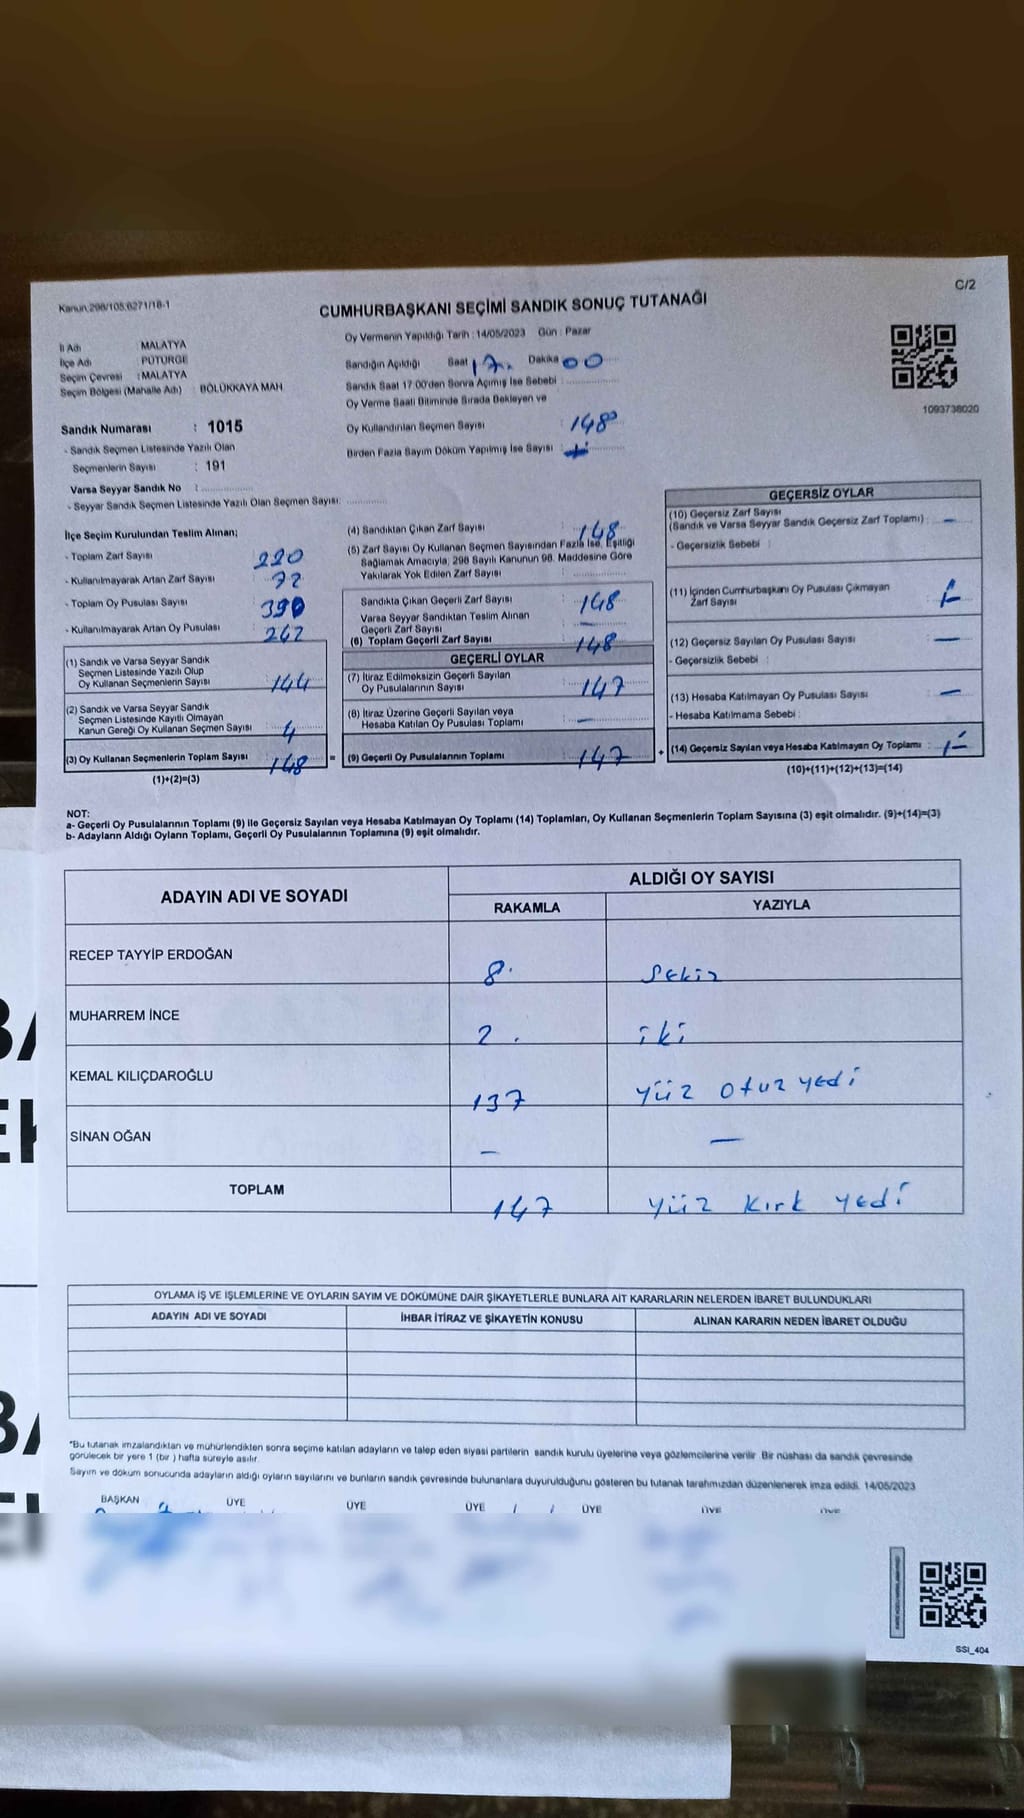 C/2
Kanun:298/105,6271/18-1
CUMHURBAŞKANI SEÇİMİ SANDIK SONUÇ TUTANAĞI
İl Adı : MALATYA
İlçe Adı : PÜTÜRGE
Seçim Çevresi : MALATYA
Seçim Bölgesi (Mahalle Adı) : BÖLÜKKAYA MAH
Sandık Numarası : 1015
- Sandık Seçmen Listesinde Yazılı Olan
Seçmenlerin Sayısı : 191
Varsa Seyyar Sandık No :
- Seyyar Sandık Seçmen Listesinde Yazılı Olan Seçmen Sayısı:
Oy Vermenin Yapıldığı Tarih : 14/05/2023 Gün : Pazar
Sandığın Açıldığı Saat 17. Dakika 00
Sandık Saat 17.00'den Sonra Açımış İse Sebebi :
Oy Verme Saati Bitiminde Sırada Bekleyen ve
Oy Kullandırılan Seçmen Sayısı : 148
Birden Fazla Sayım Döküm Yapılmış İse Sayısı :
1093738020
İlçe Seçim Kurulundan Teslim Alınan;
- Toplam Zarf Sayısı : 220
- Kullanılmayarak Artan Zarf Sayısı : 72
- Toplam Oy Pusulası Sayısı : 390
- Kullanılmayarak Artan Oy Pusulası : 242
(1) Sandık ve Varsa Seyyar Sandık
Seçmen Listesinde Yazılı Olup
Oy Kullanan Seçmenlerin Sayısı : 144
(2) Sandık ve Varsa Seyyar Sandık
Seçmen Listesinde Kayıtlı Olmayan
Kanun Gereği Oy Kullanan Seçmen Sayısı : 4
(3) Oy Kullanan Seçmenlerin Toplam Sayısı : 148
(1)+(2)=(3)
(4) Sandıktan Çıkan Zarf Sayısı : 148
(5) Zarf Sayısı Oy Kullanan Seçmen Sayısından Fazla İse, Eşitliği
Sağlamak Amacıyla, 298 Sayılı Kanunun 98. Maddesine Göre
Yakılarak Yok Edilen Zarf Sayısı :
Sandıkta Çıkan Geçerli Zarf Sayısı : 148
Varsa Seyyar Sandıktan Teslim Alınan
Geçerli Zarf Sayısı : —
(6) Toplam Geçerli Zarf Sayısı : 148
GEÇERLİ OYLAR
(7) İtiraz Edilmeksizin Geçerli Sayılan
Oy Pusulalarının Sayısı : 147
(8) İtiraz Üzerine Geçerli Sayılan veya
Hesaba Katılan Oy Pusulası Toplamı : —
= (9) Geçerli Oy Pusulalarının Toplamı : 147
GEÇERSİZ OYLAR
(10) Geçersiz Zarf Sayısı
(Sandık ve Varsa Seyyar Sandık Geçersiz Zarf Toplamı) : —
- Geçersizlik Sebebi :
(11) İçinden Cumhurbaşkanı Oy Pusulası Çıkmayan
Zarf Sayısı :
(12) Geçersiz Sayılan Oy Pusulası Sayısı : —
- Geçersizlik Sebebi :
(13) Hesaba Katılmayan Oy Pusulası Sayısı : —
- Hesaba Katılmama Sebebi :
+ (14) Geçersiz Sayılan veya Hesaba Katılmayan Oy Toplamı :
(10)+(11)+(12)+(13)=(14)
NOT:
a- Geçerli Oy Pusulalarının Toplamı (9) ile Geçersiz Sayılan veya Hesaba Katılmayan Oy Toplamı (14) Toplamları, Oy Kullanan Seçmenlerin Toplam Sayısına (3) eşit olmalıdır. (9)+(14)=(3)
b- Adayların Aldığı Oyların Toplamı, Geçerli Oy Pusulalarının Toplamına (9) eşit olmalıdır.
ADAYIN ADI VE SOYADI ALDIĞI OY SAYISI
RAKAMLA YAZIYLA
RECEP TAYYİP ERDOĞAN 8. sekiz
MUHARREM İNCE 2. iki
KEMAL KILIÇDAROĞLU 137 yüz otuz yedi
SİNAN OĞAN — —
TOPLAM 147 yüz kırk yedi
OYLAMA İŞ VE İŞLEMLERİNE VE OYLARIN SAYIM VE DÖKÜMÜNE DAİR ŞİKAYETLERLE BUNLARA AİT KARARLARIN NELERDEN İBARET BULUNDUKLARI
ADAYIN ADI VE SOYADI İHBAR İTİRAZ VE ŞİKAYETİN KONUSU ALINAN KARARIN NEDEN İBARET OLDUĞU
*Bu tutanak imzalandıktan ve mühürlendikten sonra seçime katılan adayların ve talep eden siyasi partilerin sandık kurulu üyelerine veya gözlemcilerine verilir. Bir nüshası da sandık çevresinde
görülecek bir yere 1 (bir) hafta süreyle asılır.
Sayım ve döküm sonucunda adayların aldığı oyların sayılarını ve bunların sandık çevresinde bulunanlara duyurulduğunu gösteren bu tutanak tarafımızdan düzenlenerek imza edildi. 14/05/2023
BAŞKAN ÜYE ÜYE ÜYE ÜYE ÜYE ÜYE
SSI_404